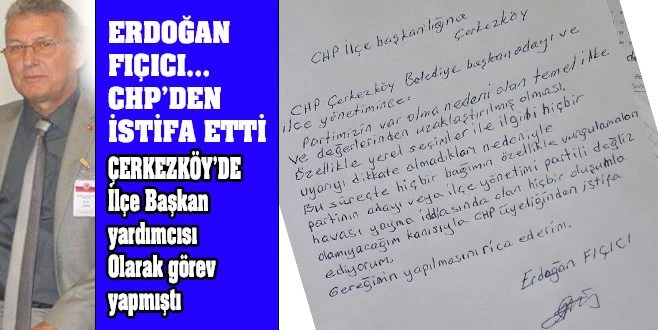 ERDOĞAN
FIÇICI...
CHP'DEN
İSTİFA ETTİ
ÇERKEZKÖY'DE
İlçe Başkan
yardımcısı
Olarak görev
yapmıştı
CHP İlçe başkanlığına
Çerkezköy
CHP Çerkezköy Belediye başkan adayı ve
ilçe yönetimince;
Partimizin var olma nedeni olan temel ilke
ve değerlerinden uzaklaştırılmış olması,
Özellikle yerel seçimler ile ilgili hiçbir
uyarıyı dikkate olmadıkları nedeniyle
Bu süreçte hiçbir bağımın özellikle vurgulamaları
partinin adayı veya ilçe yönetimi partili değiliz
havası yayma iddiasında olan hiçbir oluşumla
olamıyacağım kanısıyla CHP üyeliğinden istifa
ediyorum.
Gereğimin yapılmasını rica ederim.
Erdoğan FIÇICI